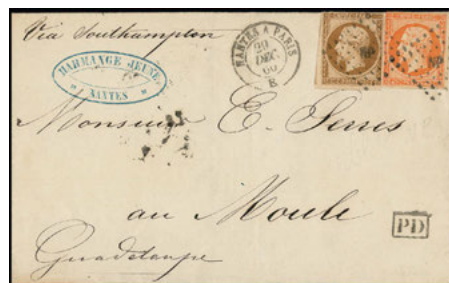 Via Southampton
HARMANGE JEUNE
NANTES
NANTES A PARIS
29
DEC.
60
E
NP
NP
Monsieur E. Serres
au Moule
PD
Guadeloupe